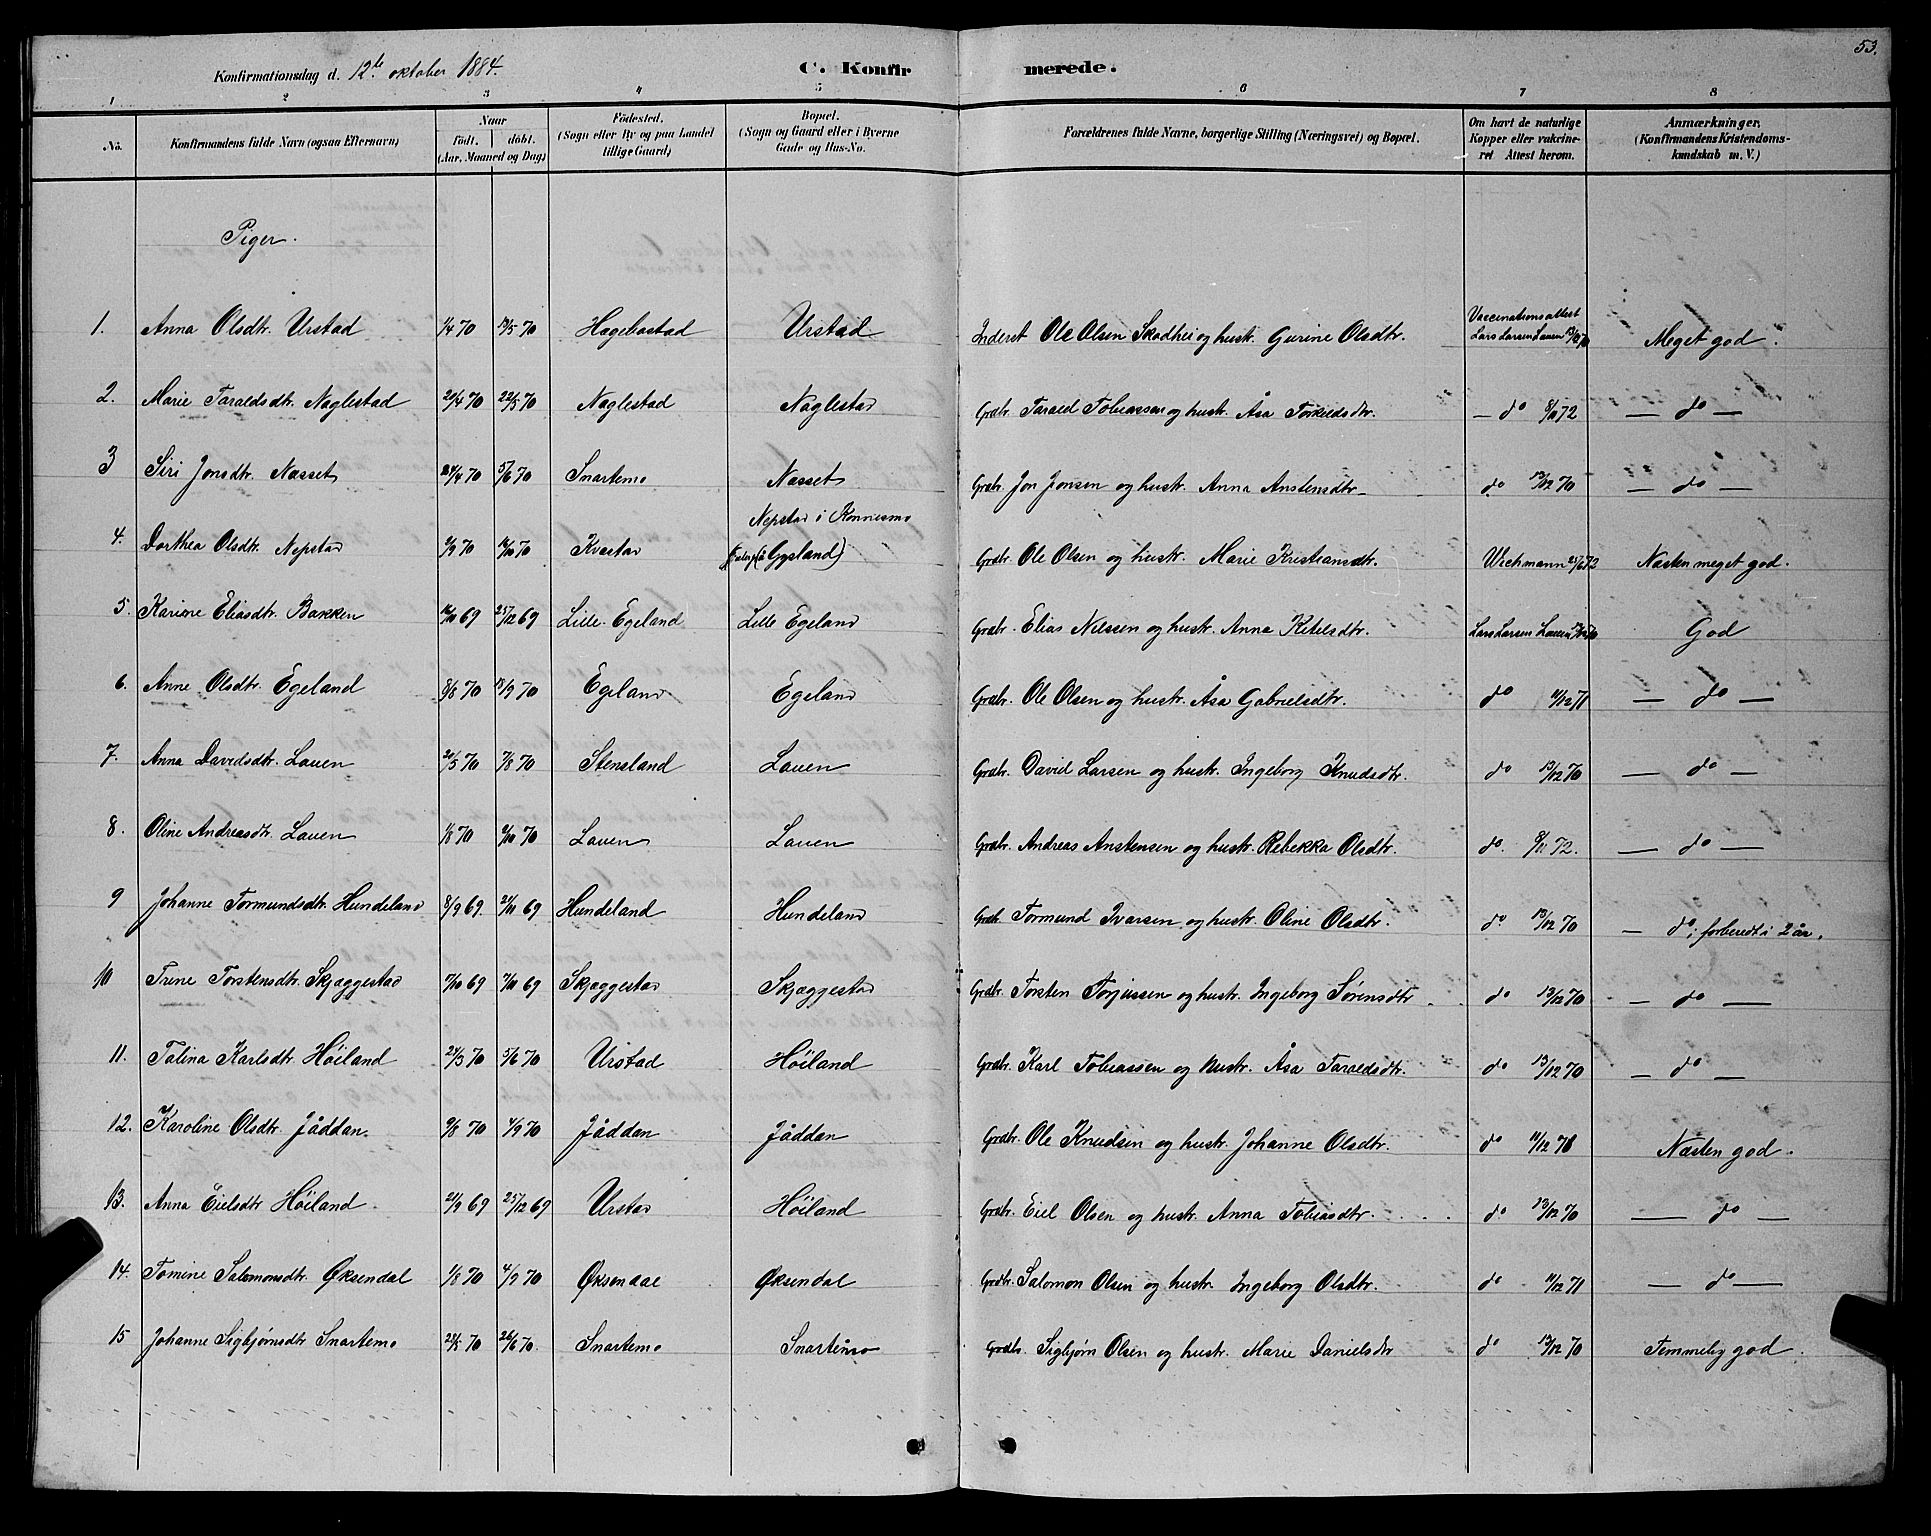 53.
Konfirmationsdag d. 12te oktober 1884.
C. Konfirmerede.
1 2 3 4 5 6 7 8
No.
Konfirmandens fulde Navn (ogsaa Efternavn)
Naar
födt. döbt.
(Aar, Maaned og Dag)
Födested.
(Sogn eller By og paa Landet
tillige Gaard)
Bopæl.
(Sogn og Gaard eller i Byerne
Gade og Hus-No.
Forældrenes fulde Navne, borgerlige Stilling (Næringsvei) og Bopæl.
Om havt de naturlige
Kopper eller vakcine-
ret Attest herom.
Anmærkninger.
(Konfirmandens Kristendoms-
kundskab m. V.)
Piger.
1. Anna Olsdtr. Urstad 1/4 70 /5 70 Hægebostad Urstad Inderst Ole Olsen Skadhei og hustr. Gurine Olsdtr. Vaccinationsattest Lars Larsen Lauen 13/12 70 Meget god.
2. Marie Taraldsdtr. Naglestad 20/4 70 22/5 70 Naglestad Naglestad Grdbr. Tarald Tobiassen og hustr. Åsa Torkildsdtr. — do 8/11 72 — do —
3 Siri Jonsdtr. Næsset 24/4 70 5/6 70 Snartemo Næsset Grdbr. Jon Jonsen og hustr. Anna Anstensdtr. do. 13/12 70 — do —
Nepstad i Konnesmo
4. Dorthea Olsdtr. Nepstad /9 70 /10 70 Kvastad Gysland) Grdbr. Ole Olsen og hustr. Marie Kristiansdtr. Wichmann 21/6 72 Næsten meget god.
5. Karine Eliasdtr. Bakken /10 69 25/12 69 Lille Egeland Lille Egeland Grdbr. Elias Nilssen og hustr. Anna Ketilsdtr. Lars Larsen Lauen 13/12 70 God
6. Anne Olsdtr. Egeland 8/8 70 18/9 70 Egeland Egeland Grdbr. Ole Olsen og hustr. Åsa Gabrielsdtr. do 11/12 71 — do —
7. Anna Davidsdtr. Lauen 20/5 70 7/8 70 Stensland Lauen Grdbr. David Larsen og hustr. Ingeborg Knudsdtr. do 13/12 70 — do —
8. Oline Andreasdtr. Lauen 1/8 70 /10 70 Lauen Lauen Grdbr. Andreas Anstensen og hustr. Rebekka Olsdtr. do. 8/11 72. — do —
9 Johanne Tormundsdtr. Hundeland 8/9 69. 21/11 69 Hundeland Hundeland Grdbr. Tormund Ivarsen og hustr. Oline Olsdtr. do 13/12 70 — do; forberedt i 2 år.
10 Trine Torstensdtr. Skjæggestad 7/10 69 7/11 69 Skjæggestad Skjæggestad Grdbr. Torsten Torjussen og hustr. Ingeborg Sørensdtr. do 13/12 70 — do —
11. Talina Karlsdtr. Høiland 24/3 70 5/6 70 Urstad Høiland Grdbr. Karl Tobiassen og hustr. Åsa Taraldsdtr. do 13/12 70 — do —
12. Karoline Olsdtr. Jåddan. 9/8 70 4/9 70 Jåddan Jåddan Grdbr. Ole Knudsen og hustr. Johanne Olsdtr. do 11/12 71 Næsten god.
13. Anna Eielsdtr. Høiland 21/9 69 25/12 69 Urstad Høiland Grdbr. Eiel Olsen og hustr. Anna Tobiasdtr. do 13/12 70 — do —
14. Tomine Salomonsdtr. Øksendal 1/8 70 4/9 70 Øksendal Øksendal Grdbr. Salomon Olsen og hustr. Ingeborg Olsdtr. do 11/12 71 — do —
15 Johanne Sigbjørnsdtr. Snartemo 23/5 70 26/6 70. Snartemo Snartemo Grdbr. Sigbjørn Olsen og hustr. Marie Danielsdtr do 13/12 70 Temmelig god.